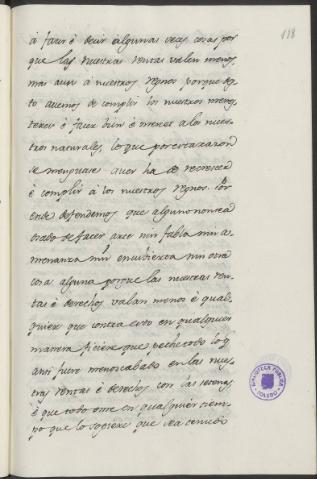 118
á facer é decir algunas veces cosas por
que las nuestras rentas valen menos,
mas aun á nuestros regnos porque es
to avemos de complir los nuestros menes
teres é facer bien é merced a los nues
tros naturales, lo que por esta razon
se menguare aver ha de recrescer
é complir á los nuestros regnos. Por
ende defendemos que alguno non sea
osado de facer arte nin fabla nin a
menanza nin encubierta nin otra
cosa alguna porque las nuestras ren
tas é derechos valan menos é qual
quiere que contra esto en qualquier
manera ficiere que peche todo lo q
ansi fuere menoscabado en las nues
tras rentas é derechos con las setenas
é que todo ome en qualquier tiem
po que lo sopiere que sea tenudo
BIBLIOTECA PUBLICA
TOLEDO